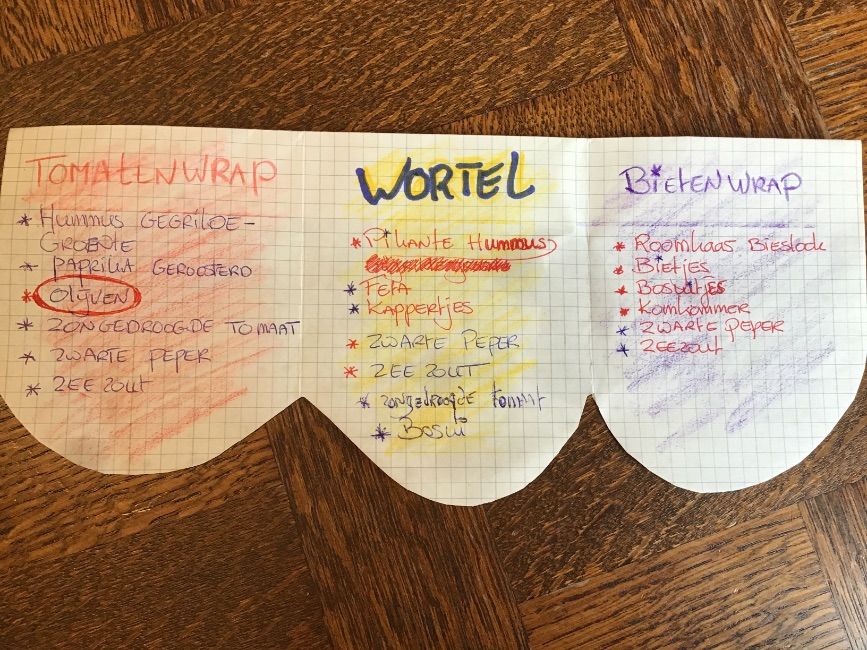 TOMATENWRAP
* HUMMUS GEGRILDE-
GROENTE
* PAPRIKA GEROOSTERD
* OLIJVEN
* ZONGEDROOGDE TOMAAT
* ZWARTE PEPER
* ZEE ZOUT
WORTEL
* PIKANTE HUMMUS
* FETA
* KAPPERTJES
* ZWARTE PEPER
* ZEE ZOUT
* ZONGEDROOGDE tomaat
* BOSUI
BIETENWRAP
* ROOMKAAS BIESLOOK
* BIETJES
* BOSUITJES
* KOMKOMMER
* ZWARTE PEPER
* ZEEZOUT